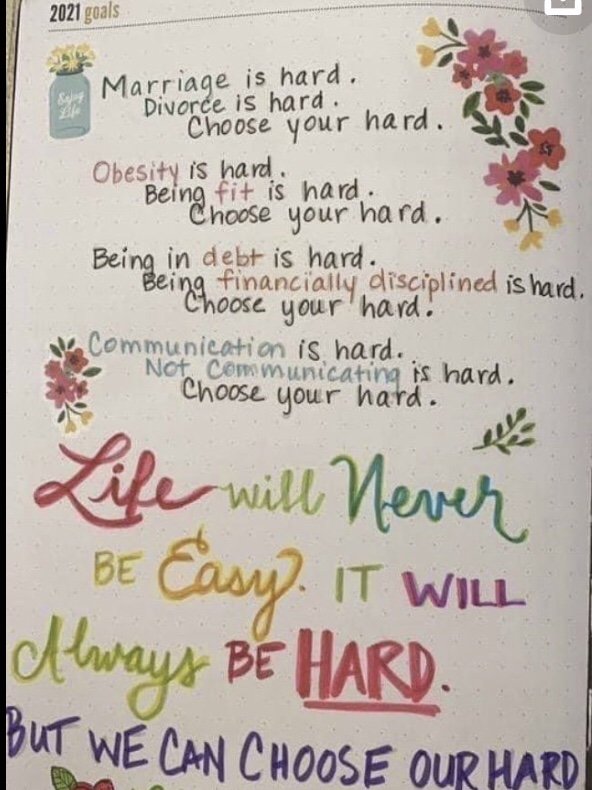 2021 goals
Enjoy
Life
Marriage is hard.
Divorce is hard.
Choose your hard.
Obesity is hard.
Being fit is hard.
Choose your hard.
Being in debt is hard.
Being financially disciplined is hard.
Choose your hard.
Communication is hard.
Not Communicating is hard.
Choose your hard.
Life will Never
BE Easy. IT WILL
Always BE HARD.
BUT WE CAN CHOOSE OUR HARD